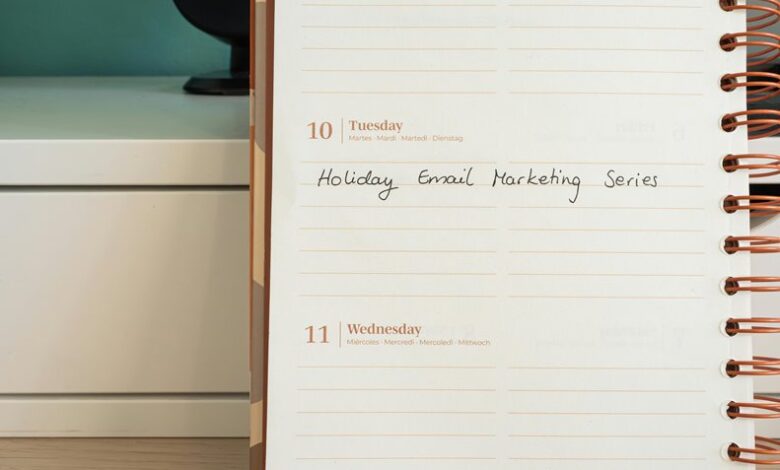 10 Tuesday
Martes · Mardi · Martedì · Dienstag
Holiday Email Marketing Series
11 Wednesday
Miércoles · Mercredi · Mercoledì · Mittwoch